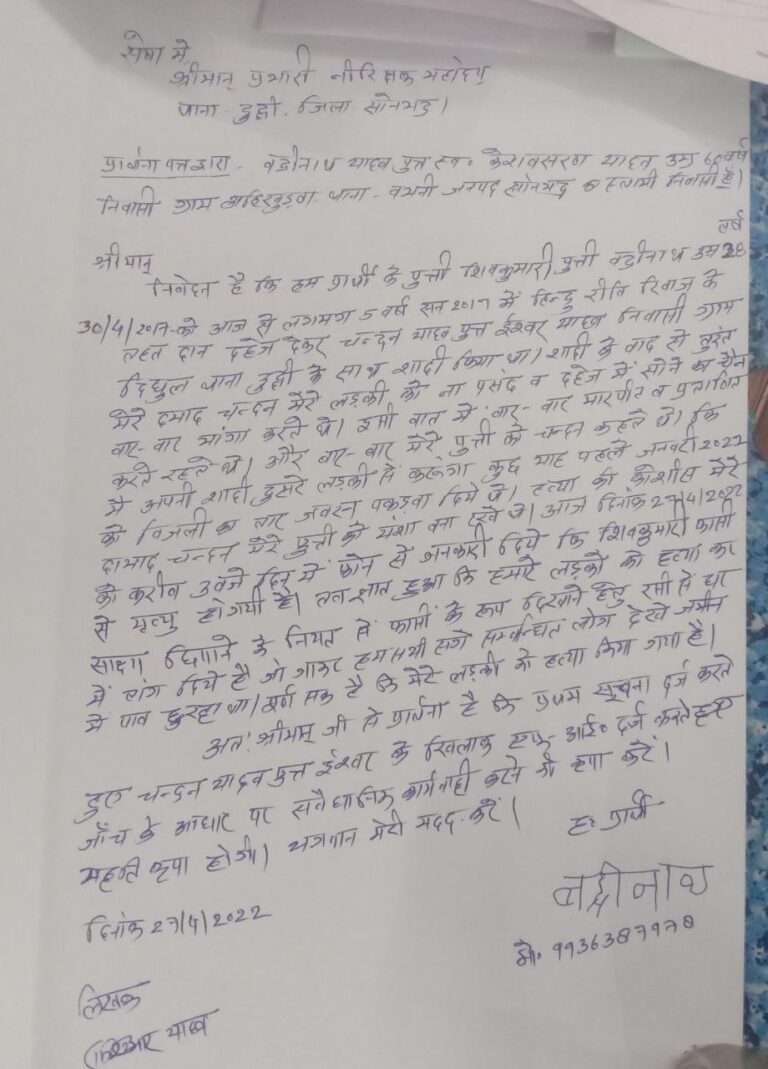 सेवा में
श्रीमान् प्रभारी नीरिक्षक महोदय
थाना दुद्धी जिला सोनभद्र।
प्रार्थना पत्र द्वारा - बद्रीनाथ यादव पुत्र स्व० केशवसरण यादव उम्र वर्ष
निवासी ग्राम थाना - बभनी जनपद सोनभद्र का स्थायी निवासी है।
श्रीमान्
निवेदन है कि हम प्रार्थी के पुत्री शिवकुमारी पुत्री बद्रीनाथ उम्र 28 वर्ष
30/4/2017 को आज से लगभग 5 वर्ष सन 2017 में हिन्दु रीति रिवाज के
तहत दान दहेज देकर चन्दन यादव पुत्र ईश्वर यादव निवासी ग्राम
दिघुल थाना दुद्धी के साथ शादी किया था। शादी के बाद से तुरंत
मेरे दमाद चन्दन मेरे लड़की को ना पसंद व दहेज में सोने का चैन
बार-बार मांगा करते थे। इसी बात में बार-बार मारपीट व प्रताणित
करते रहते थे। और बार-बार मेरे पुत्री को चन्दन कहते थे। कि
मै अपनी शादी दुसरे लड़की से करूंगा कुछ माह पहले जनवरी 2022
को बिजली का तार जबरन पकड़वा दिये थे। हत्या की कोशीस मेरे
दामाद चन्दन मेरे पुत्री को बना रखे थे। आज दिनांक 27/4/2022
को करीब 3 बजे दिन में फोन से जानकारी दिये कि शिवकुमारी फासी
से मृत्यु हो गयी है। तब ज्ञात हुआ कि हमारे लड़की को हत्या कर
साक्ष्य के नियत से फासी के रूप दिखाने हेतु रसी से घर
में टांग दिये है जो जाकर हम सभी सगे सम्बन्धित लोग देखे जमीन
में पाव छु रहा था। सक है कि मेरे लड़की को हत्या किया गया है।
अतः श्रीमान् जी से प्रार्थना है कि प्रथम सूचना दर्ज करते
हुए चन्दन यादव पुत्र ईश्वर के खिलाफ एफ० आई० दर्ज करते हुए
जाँच के आधार पर कार्यवाही करने की कृपा करें।
महति कृपा होगी। भगवान मेरी मदद करें।
ह० प्रार्थी
बद्रीनाथ
मो० 9936387978
दिनांक 27/4/2022
लेखक
यादव